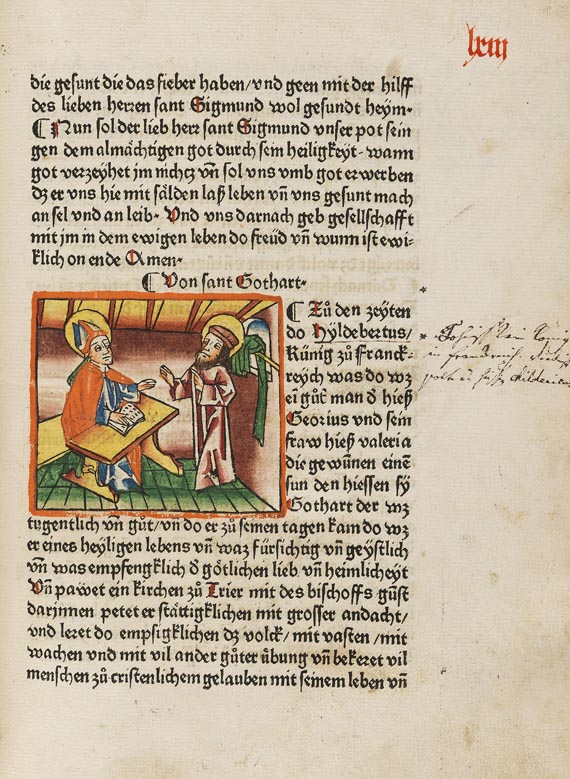 lxiii
die gesunt die das fieber haben/ vnd geen mit der hilff
des lieben herren sant Sigmund wol gesundt heym·
¶ Nun sol der lieb herꝛ sant Sigmund vnser pot sein
gen dem almächtigen got durch sein heiligkeyt· wann
got verzeyhet jm nichcz vñ sol vns vmb got erwerben
dz er vns hie mit sälden laß leben vñ vns gesunt mach
an sel vnd an leib· Vnd vns darnach geb gesellschafft
mit jm in dem ewigen leben do freüd vñ wunn ist ewi-
klich on ende Amen·
¶ Von sant Gothart·
¶ Zů den zeyten
do Hyldebertus/
Künig zů Franck-
reych was do wz
ei gůt man d̕ hieß
Georius vnd sein
fraw hieß valeria
die gewūnen einē
sun den hiessen sy
Gothart der wz
tugentlich vñ gůt/ vñ do er zů seinen tagen kam do wz
er eines heyligen lebens vñ waz fürsichtig vñ geystlich
vñ was empfengklich d̕ götlichen lieb vñ heimlicheyt
Vñ pawet ein kirchen zů Trier mit des bischoffs gūst
darjnnen petet er stättigklichen mit grosser andacht/
vnd leret do empsigklichen dz volck/ mit vasten/ mit
wachen vnd mit vil ander gůter übung vñ bekeret vil
menschen zů cristenlichem gelauben mit seinem leben vñ